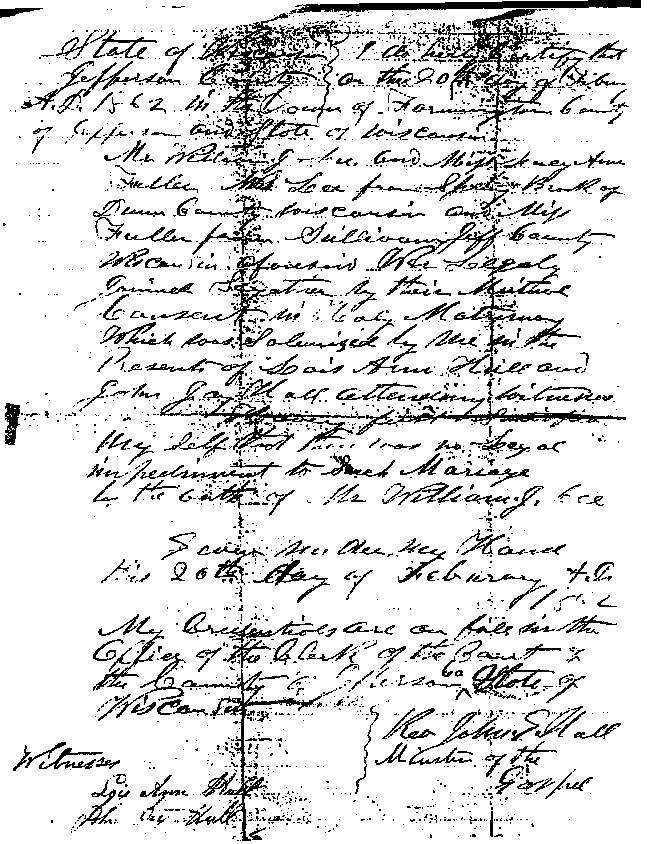 State of Wisconsin } I do hereby Certify that
Jefferson County } on the 20th day of Febury
A.D. 1862 in the Town of Farmington County
of Jefferson and State of Wisconsin
Mr William J. Lee and Miss Lucy Ann
Fuller Mr Lee from Spring Brook of
Dunn County Wisconsin and Miss
Fuller from Sullivan Jeff County
Wisconsin aforesaid Wer Legaly
Joined together by their Mutual
Consent in Holy Matrimony
Which was Solemnized by Me in the
Presents of Lois Ann Hall and
John Jay Hall attending witnesses
My self that there was no Legal
impediment to Such Mariage
by the oath of Mr William J. Lee
Given under My Hand
this 20th day of Feburary A.D.
1862
My Credentials are on file in the
Office of the Clerk of the Court of
the County of Jefferson State of
Wisconsin
Rev John E. Hall
Minister of the
Gospel
Witnesses
Lois Ann Hall
John Jay Hall